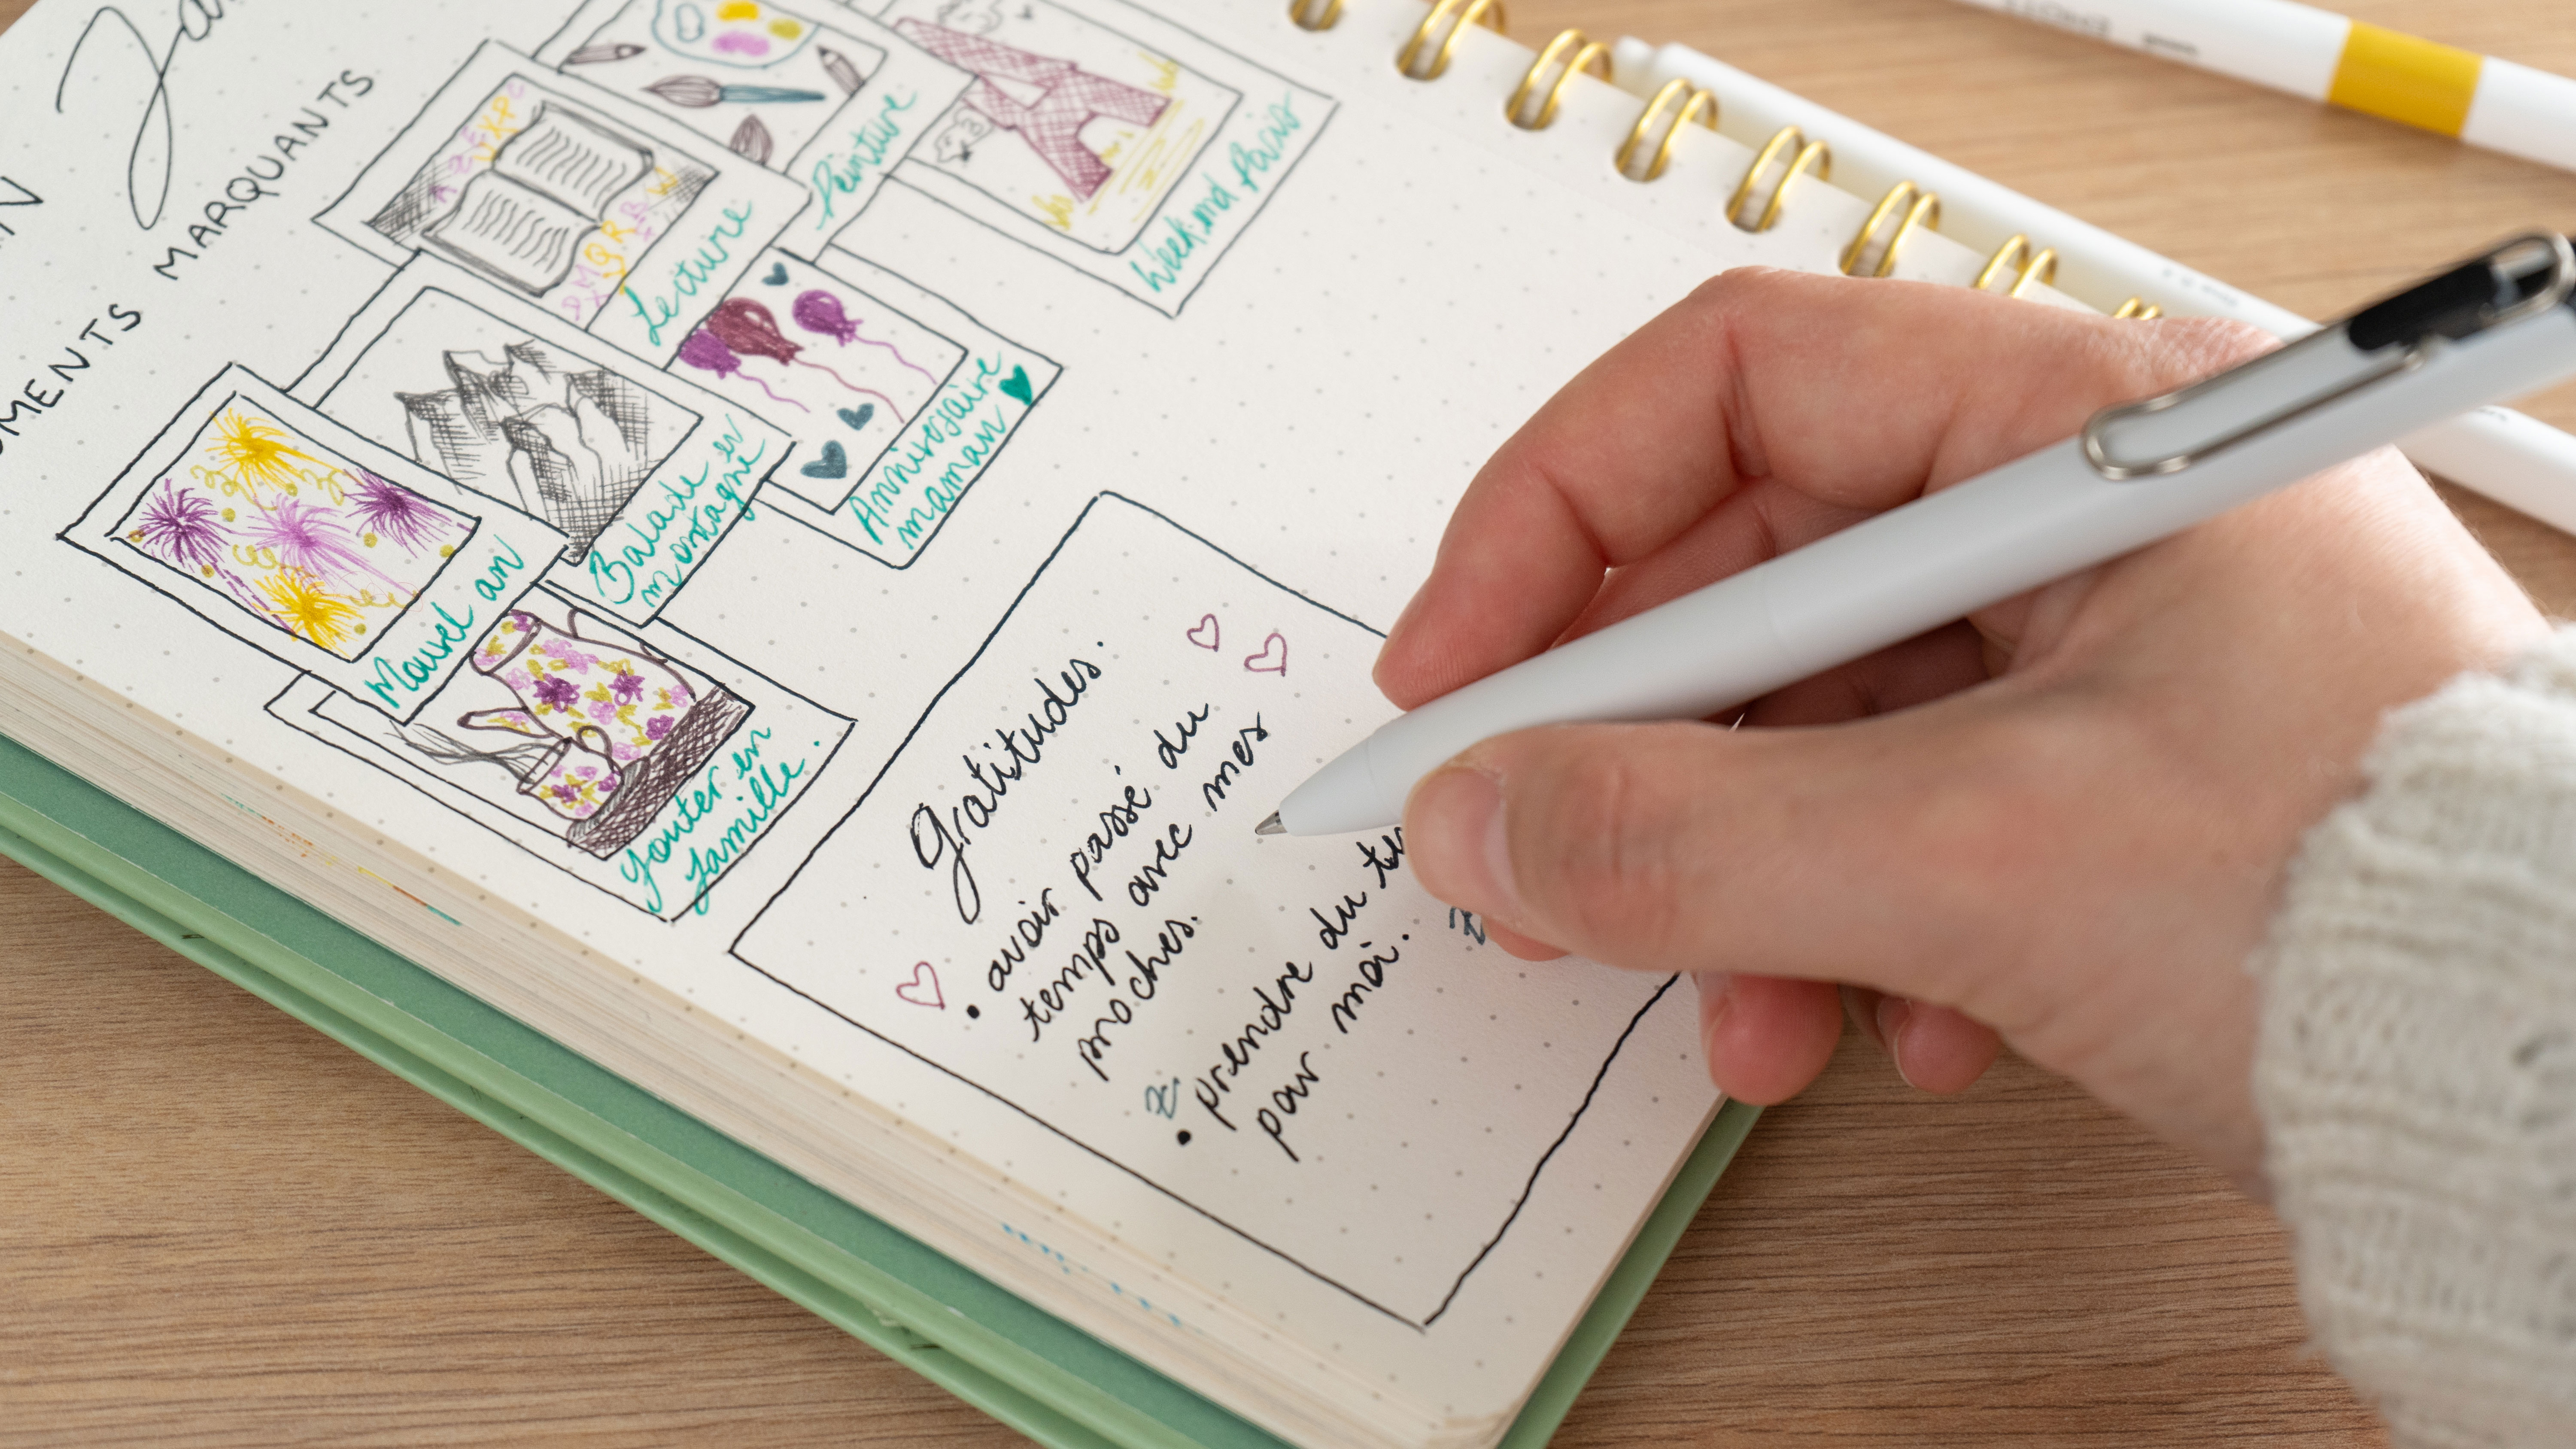 MARQUANTS
Peinture
Weekend Paris
Lecture
Anniversaire
maman
Balade en
montagne
Nouvel an
Gouter en
famille.
Gratitudes.
• avoir passé du
temps avec mes
proches.
• prendre du
pour moi.